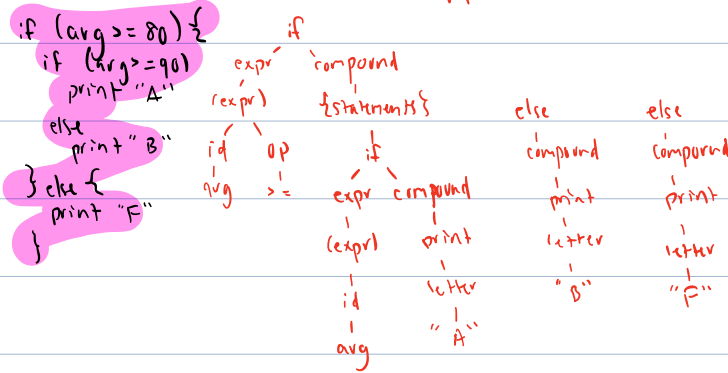 if (avg >= 80) {
if (avg >= 90)
print "A"
else
print "B"
} else {
print "F"
}
if
expr compound
(expr) {statements}
id op if
avg >= expr compound
(expr) print
id letter
avg "A"
else
compound
print
letter
"B"
else
compound
print
letter
"F"